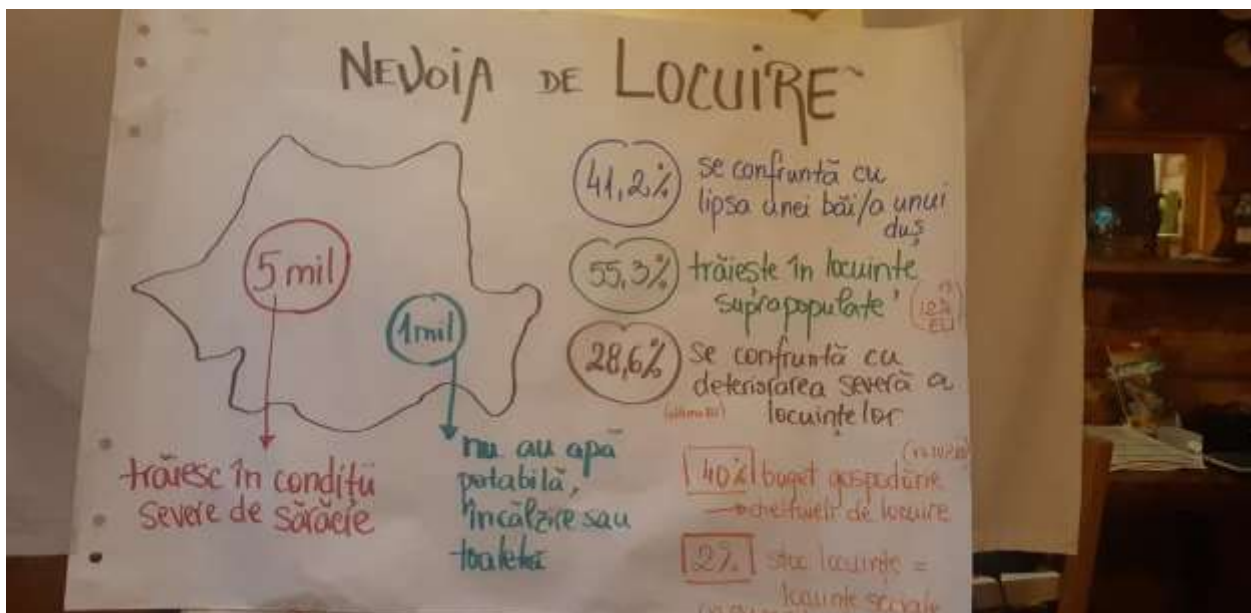 NEVOIA DE LOCUIRE
5 mil
trăiesc în condiții
severe de sărăcie
1 mil
nu au apă
potabilă,
încălzire sau
toaletă
41,2%
se confruntă cu
lipsa unei băi/a unui
duș
55,3%
trăiește în locuințe
suprapopulate
28,6%
se confruntă cu
deteriorarea severă a
locuințelor
40%
buget gospodărie
cheltuieli de locuire
2%
stoc locuințe =
locuințe sociale